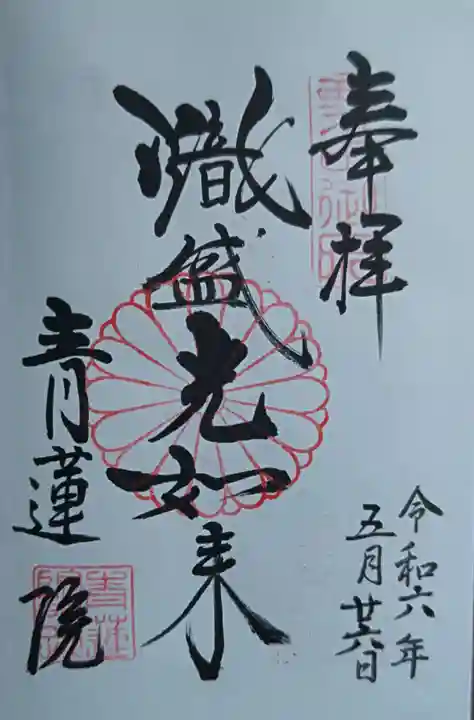 奉拝
令和六年
五月廿六日
熾盛光如来
青蓮院